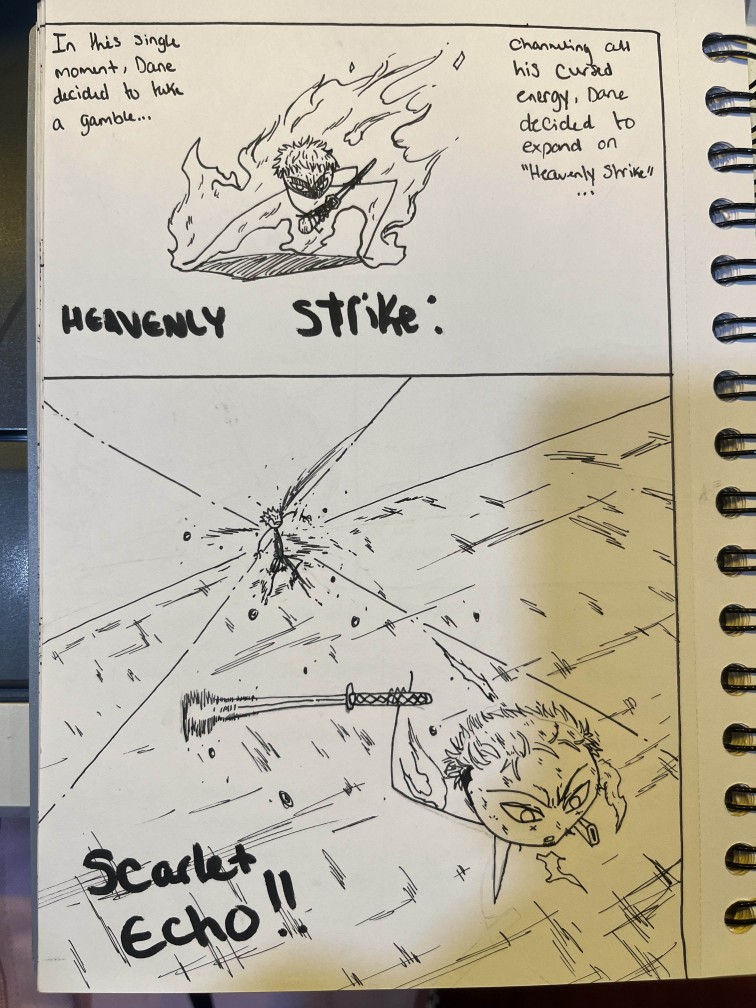 In this single
moment, Dane
decided to take
a gamble...
Channeling all
his cursed
energy, Dane
decided to
expand on
"Heavenly Strike"
...
HEAVENLY Strike:
Scarlet
Echo!!